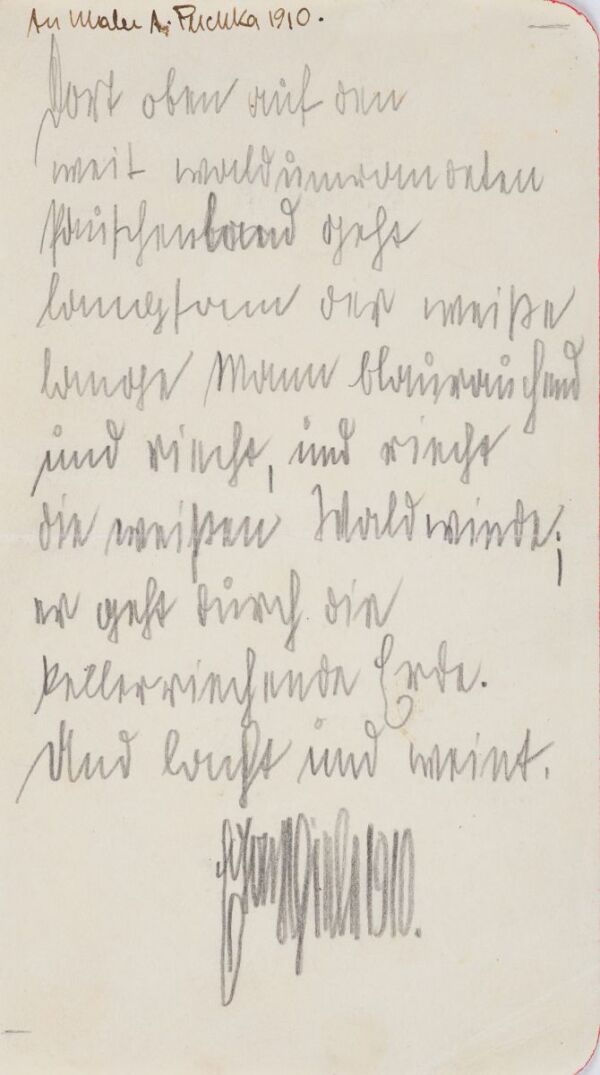 An Maler A. Peschka 1910.
Dort oben auf den
weit waldumrandeten
Rauschenland geht
langsam der weiße
lange Mann blaurauchend
und riecht, und riecht
die weißen Waldwinde;
er geht durch die
kellerriechende Erde.
Und lacht und weint.
Egon Schiele 1910.